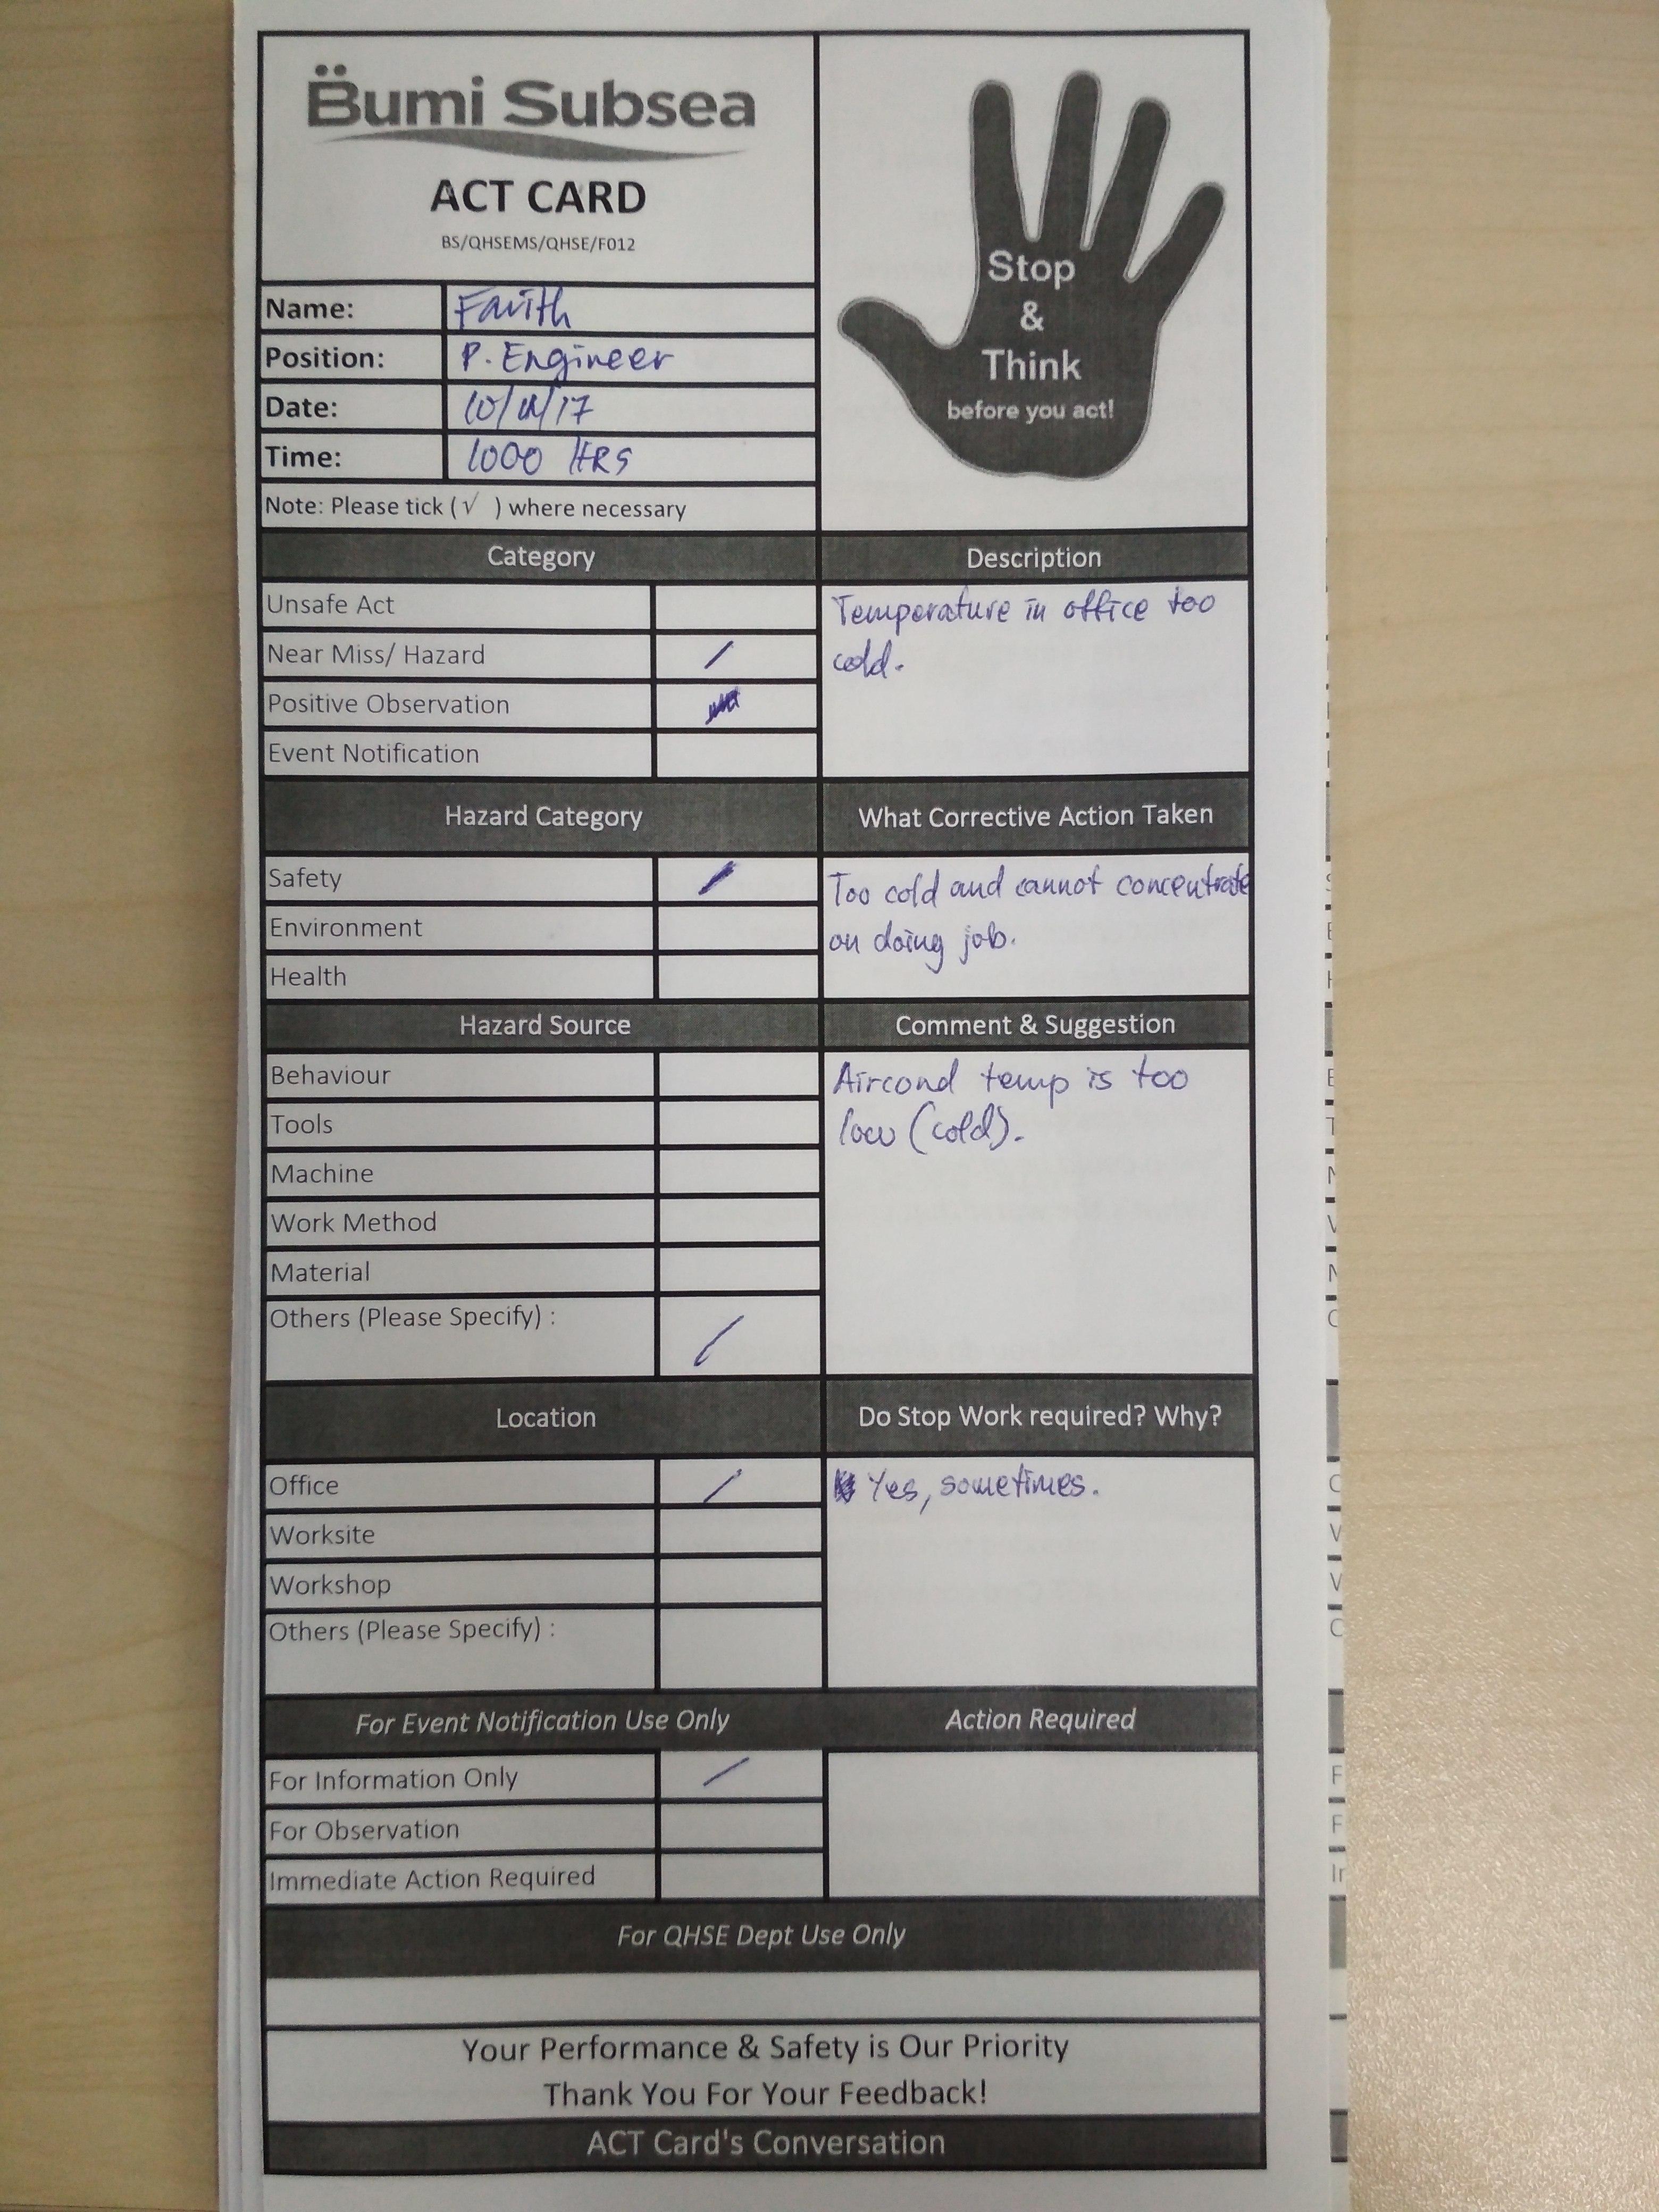 Bumi Subsea
ACT CARD
BS/QHSEMS/QHSE/F012
Name: Farith
Position: P. Engineer
Date: 10/ /17
Time: 1000 HRS
Note: Please tick (√ ) where necessary
Stop
&
Think
before you act!
Category
Unsafe Act
Near Miss/ Hazard /
Positive Observation
Event Notification
Description
Temperature in office too
cold.
Hazard Category
Safety /
Environment
Health
What Corrective Action Taken
Too cold and cannot concentrate
on doing job.
Hazard Source
Behaviour
Tools
Machine
Work Method
Material
Others (Please Specify) : /
Comment & Suggestion
Aircond temp is too
low (cold).
Location
Office /
Worksite
Workshop
Others (Please Specify) :
Do Stop Work required? Why?
Yes, sometimes.
For Event Notification Use Only
For Information Only /
For Observation
Immediate Action Required
Action Required
For QHSE Dept Use Only
Your Performance & Safety is Our Priority
Thank You For Your Feedback!
ACT Card's Conversation